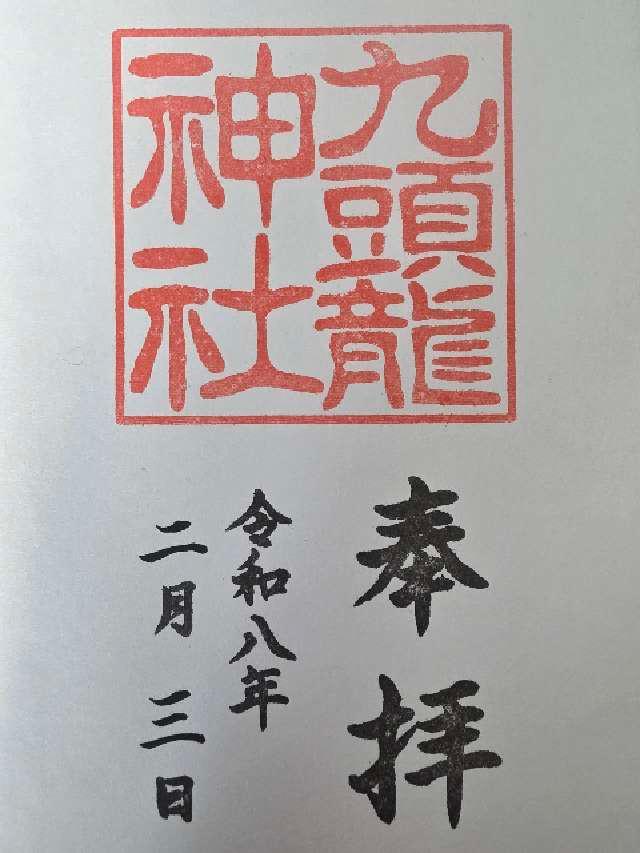 九頭龍
神社
奉拝
令和八年
二月三日